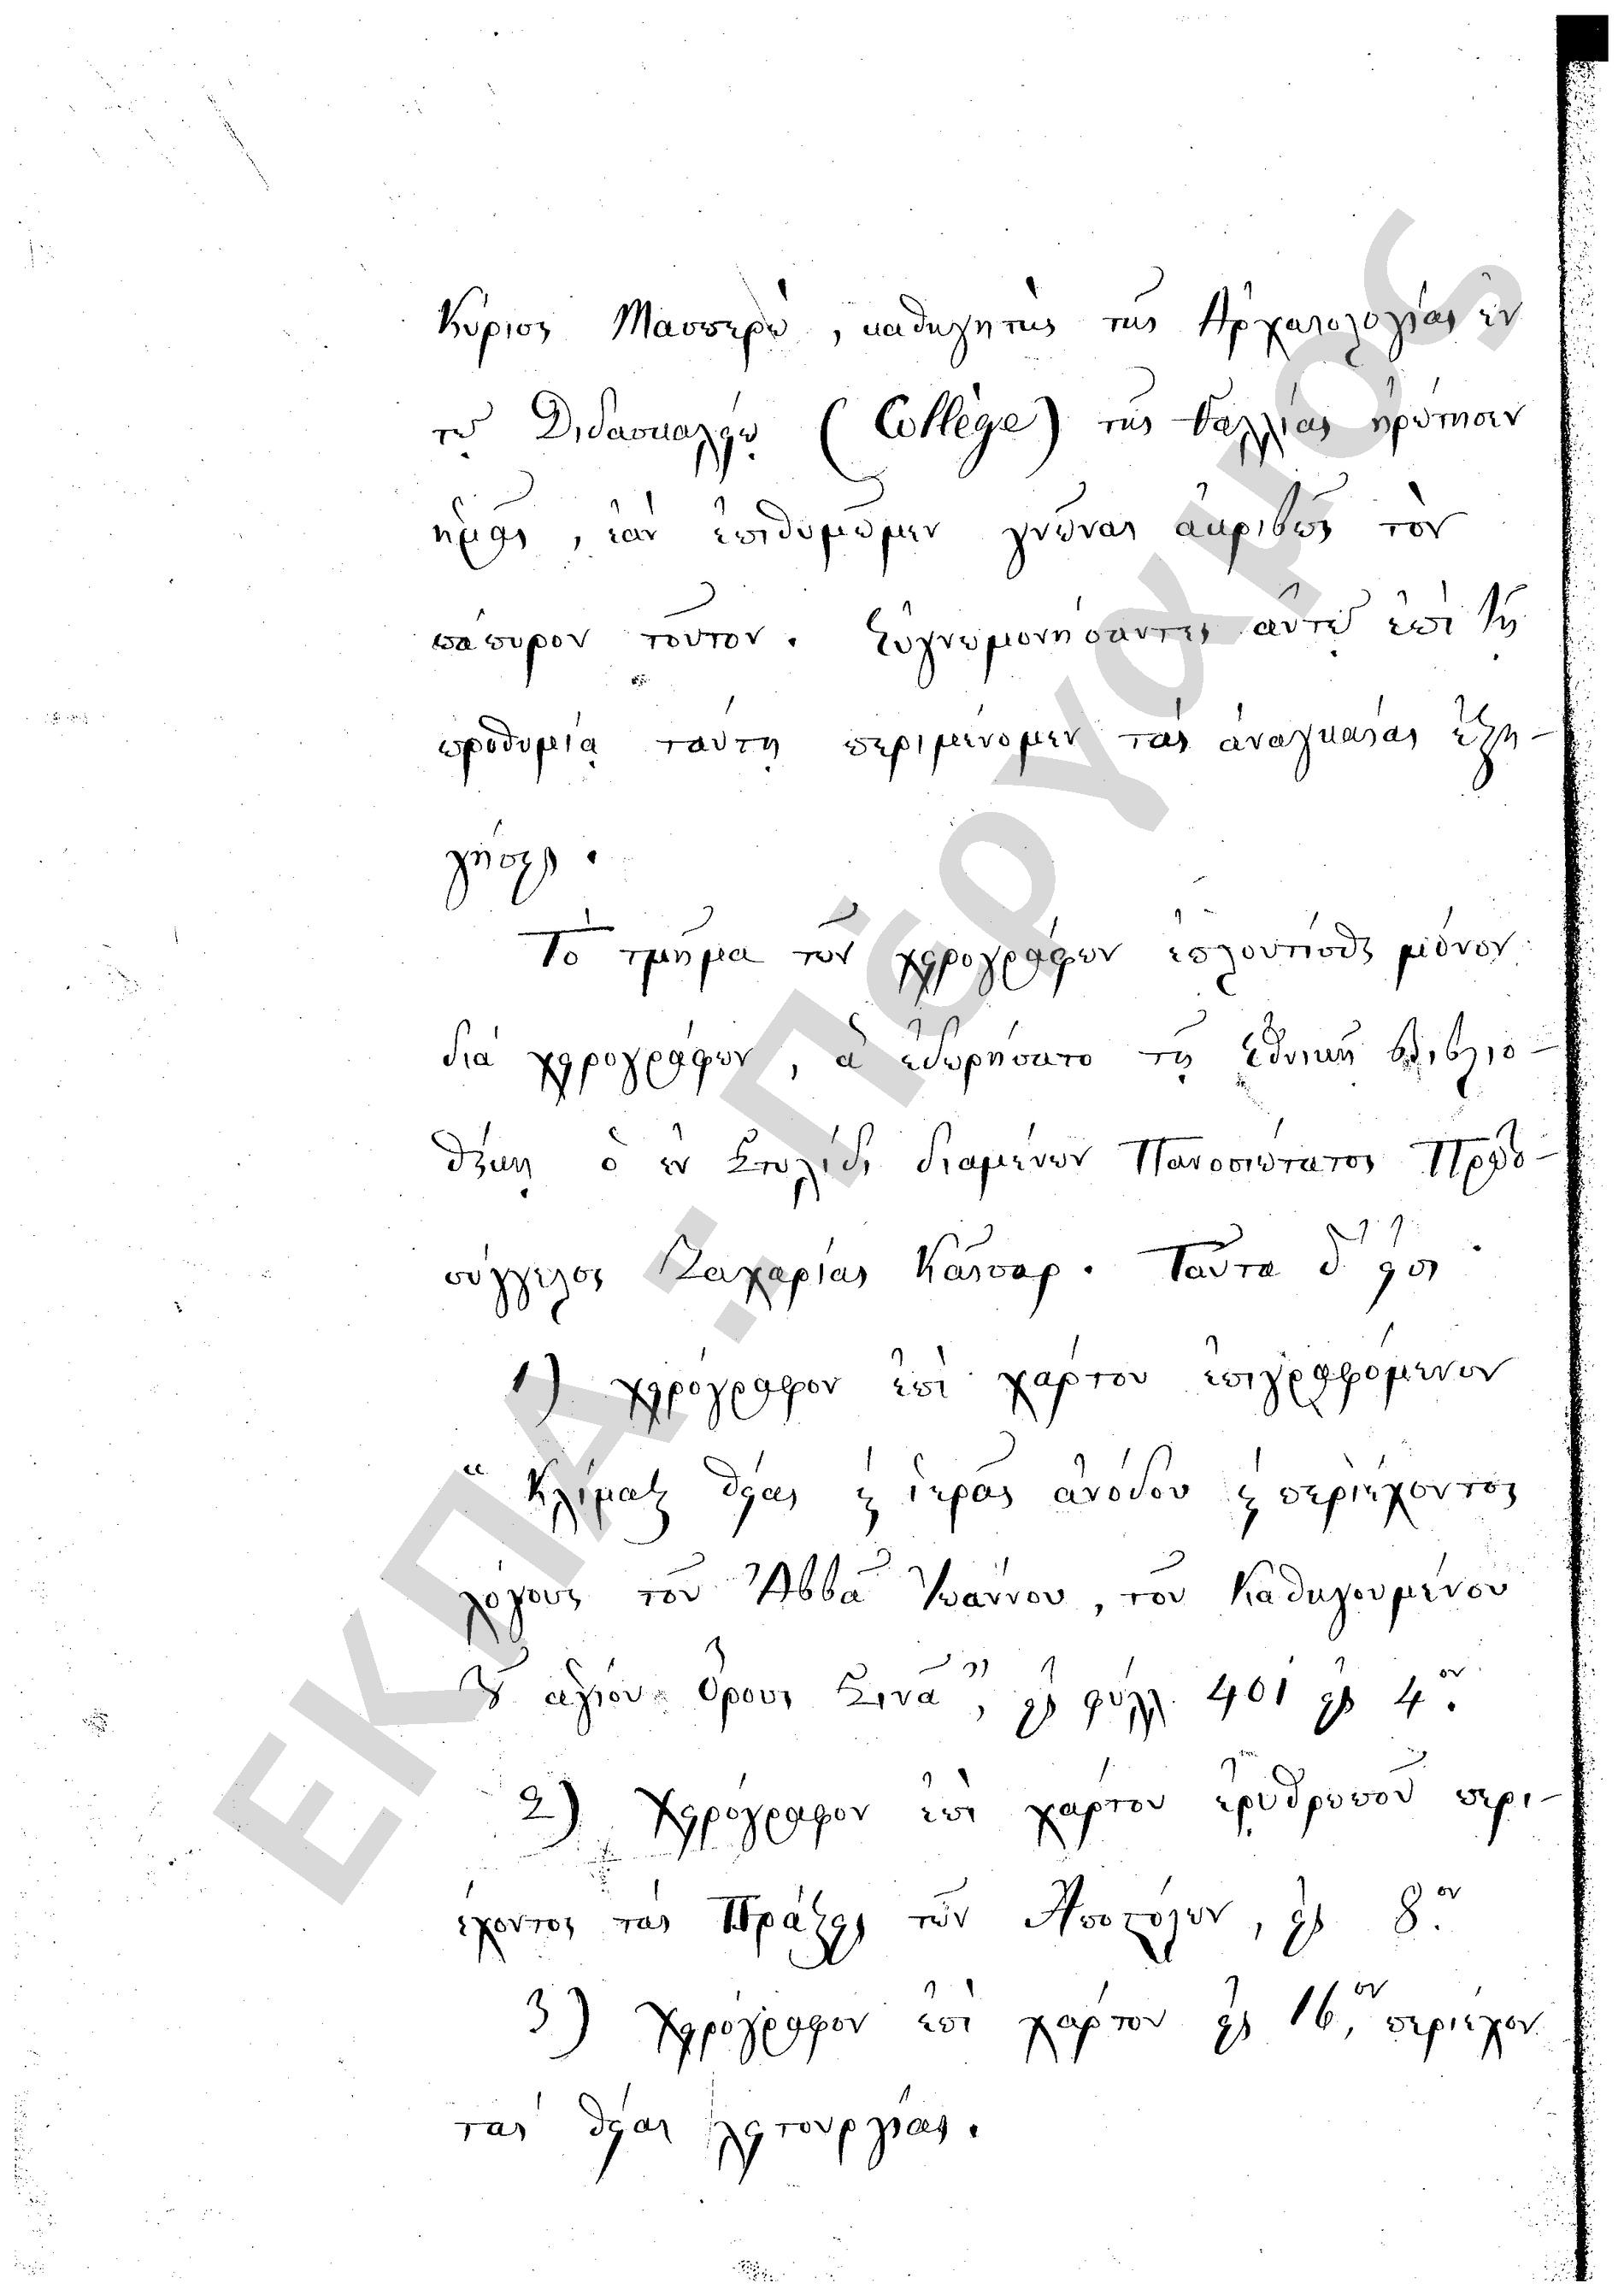 Κύριος Μασπερώ, καθηγητὴς τῆς Ἀρχαιολογίας ἐν
τῷ Διδασκαλείῳ (Collège) τῆς Γαλλίας ἠρώτησεν
ἡμᾶς, ἐὰν ἐπιθυμῶμεν γνῶναι ἀκριβῶς τὸν
πάπυρον τοῦτον. Εὐγνωμονήσαντες αὐτῷ ἐπὶ τῇ
προθυμίᾳ ταύτῃ περιμένομεν τὰς ἀναγκαίας ἐξη-
γήσεις.
Τὸ τμῆμα τῶν χειρογράφων ἐπλουτίσθη μόνον
διὰ χειρογράφων, ἃ ἐδωρήσατο τῇ Ἐθνικῇ βιβλιο-
θήκῃ ὁ ἐν Στυλίδι διαμένων Πανοσιώτατος Πρωτο-
σύγγελος Ζαχαρίας Καῖσαρ. Ταῦτα δ' εἰσί·
1) χειρόγραφον ἐπὶ χάρτου ἐπιγραφόμενον
“Κλίμαξ θείας ϗ ἱερᾶς ἀνόδου ϗ περιέχοντος
λόγους τοῦ Ἀββᾶ Ἰωάννου, τοῦ Καθηγουμένου
τοῦ ἁγίου Ὄρους Σινᾶ”, εἰς φύλλ. 401 εἰς 4.ον
2) Χειρόγραφον ἐπὶ χάρτου ἐρυθρωποῦ περι-
έχοντος τὰς Πράξεις τῶν Ἀποστόλων, εἰς 8.ον
3) Χειρόγραφον ἐπὶ χάρτου εἰς 16.ον, περιέχον
τὰς θείας λειτουργίας.
ΕΚΠΑ: Πέργαμος